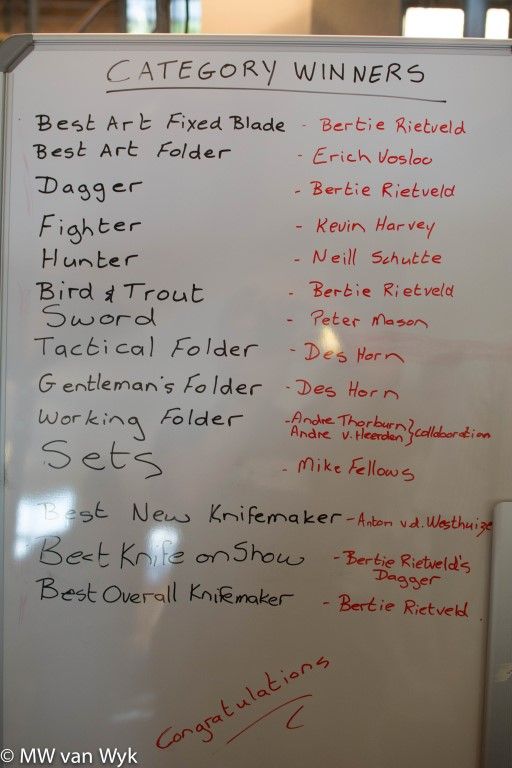 CATEGORY WINNERS
Best Art Fixed Blade - Bertie Rietveld
Best Art Folder - Erich Vosloo
Dagger - Bertie Rietveld
Fighter - Kevin Harvey
Hunter - Neill Schutte
Bird & Trout - Bertie Rietveld
Sword - Peter Mason
Tactical Folder - Des Horn
Gentleman's Folder - Des Horn
Working Folder - Andre Thorburn } collaboration
Andre v. Heerden
Sets - Mike Fellows
Best New Knifemaker - Anton v.d. Westhuize
Best Knife on Show - Bertie Rietveld's
Dagger
Best Overall Knifemaker - Bertie Rietveld
Congratulations
© MW van Wyk